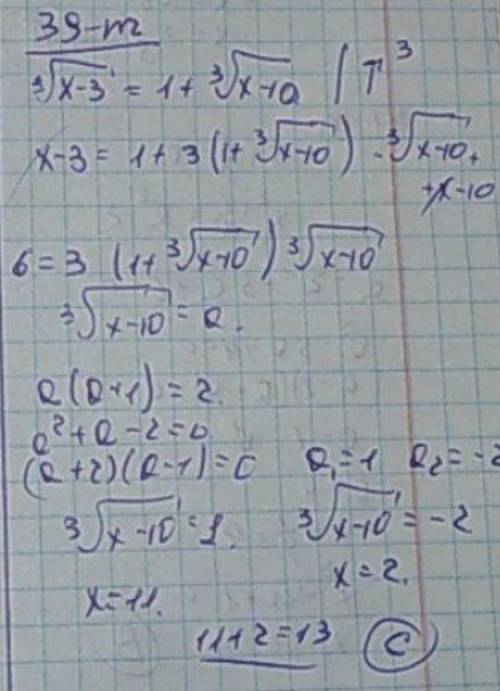 39-m
∛(x-3) = 1+ ∛(x-10) | T³
x-3 = 1+ 3 (1+ ∛(x-10)) · ∛(x-10) +
+x-10
6 = 3 (1+ ∛(x-10)) ∛(x-10)
∛(x-10) = a.
a(a+1) = 2.
a²+a-2=0
(a+2)(a-1)=0 a₁=1 a₂=-2
∛(x-10) = 1. ∛(x-10) = -2
x=11. x=2.
11+2=13 C